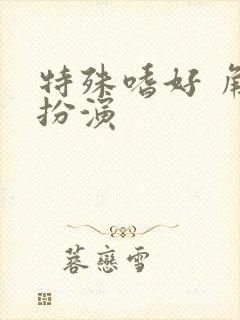 特殊嗜好 角
扮演
蓉戀雪